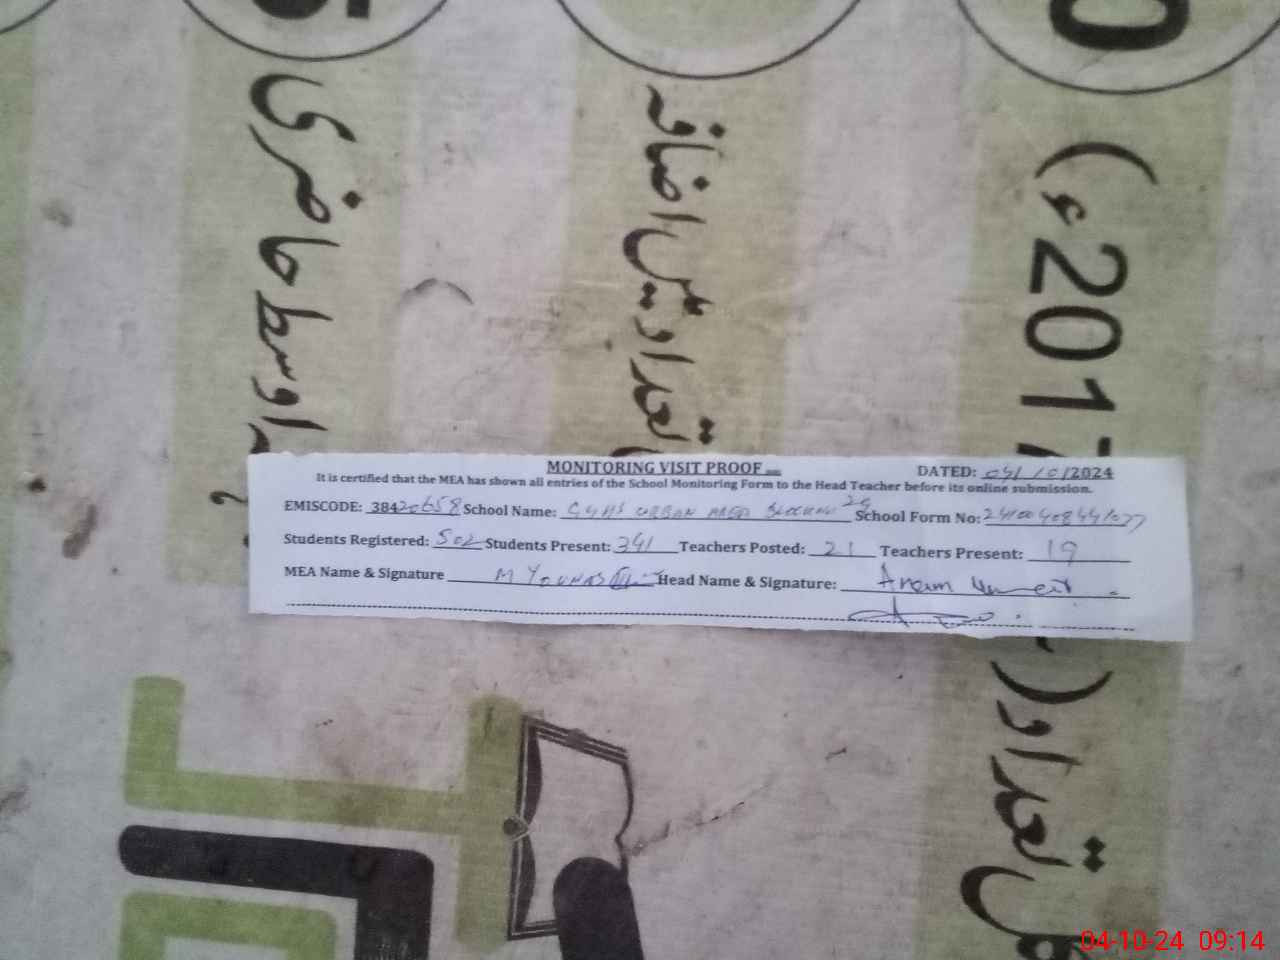 5
0
اوسط حاضری
تعداد میں اضافہ
(2017ء)
تعداد
MONITORING VISIT PROOF
DATED: 04/10/2024
It is certified that the MEA has shown all entries of the School Monitoring Form to the Head Teacher before its online submission.
EMISCODE: 38420658 School Name: GGHS URBAN AREA School Form No:
Students Registered: 502 Students Present: 341 Teachers Posted: 21 Teachers Present: 19
MEA Name & Signature M YOUNAS Head Name & Signature:
04-10-24 09:14